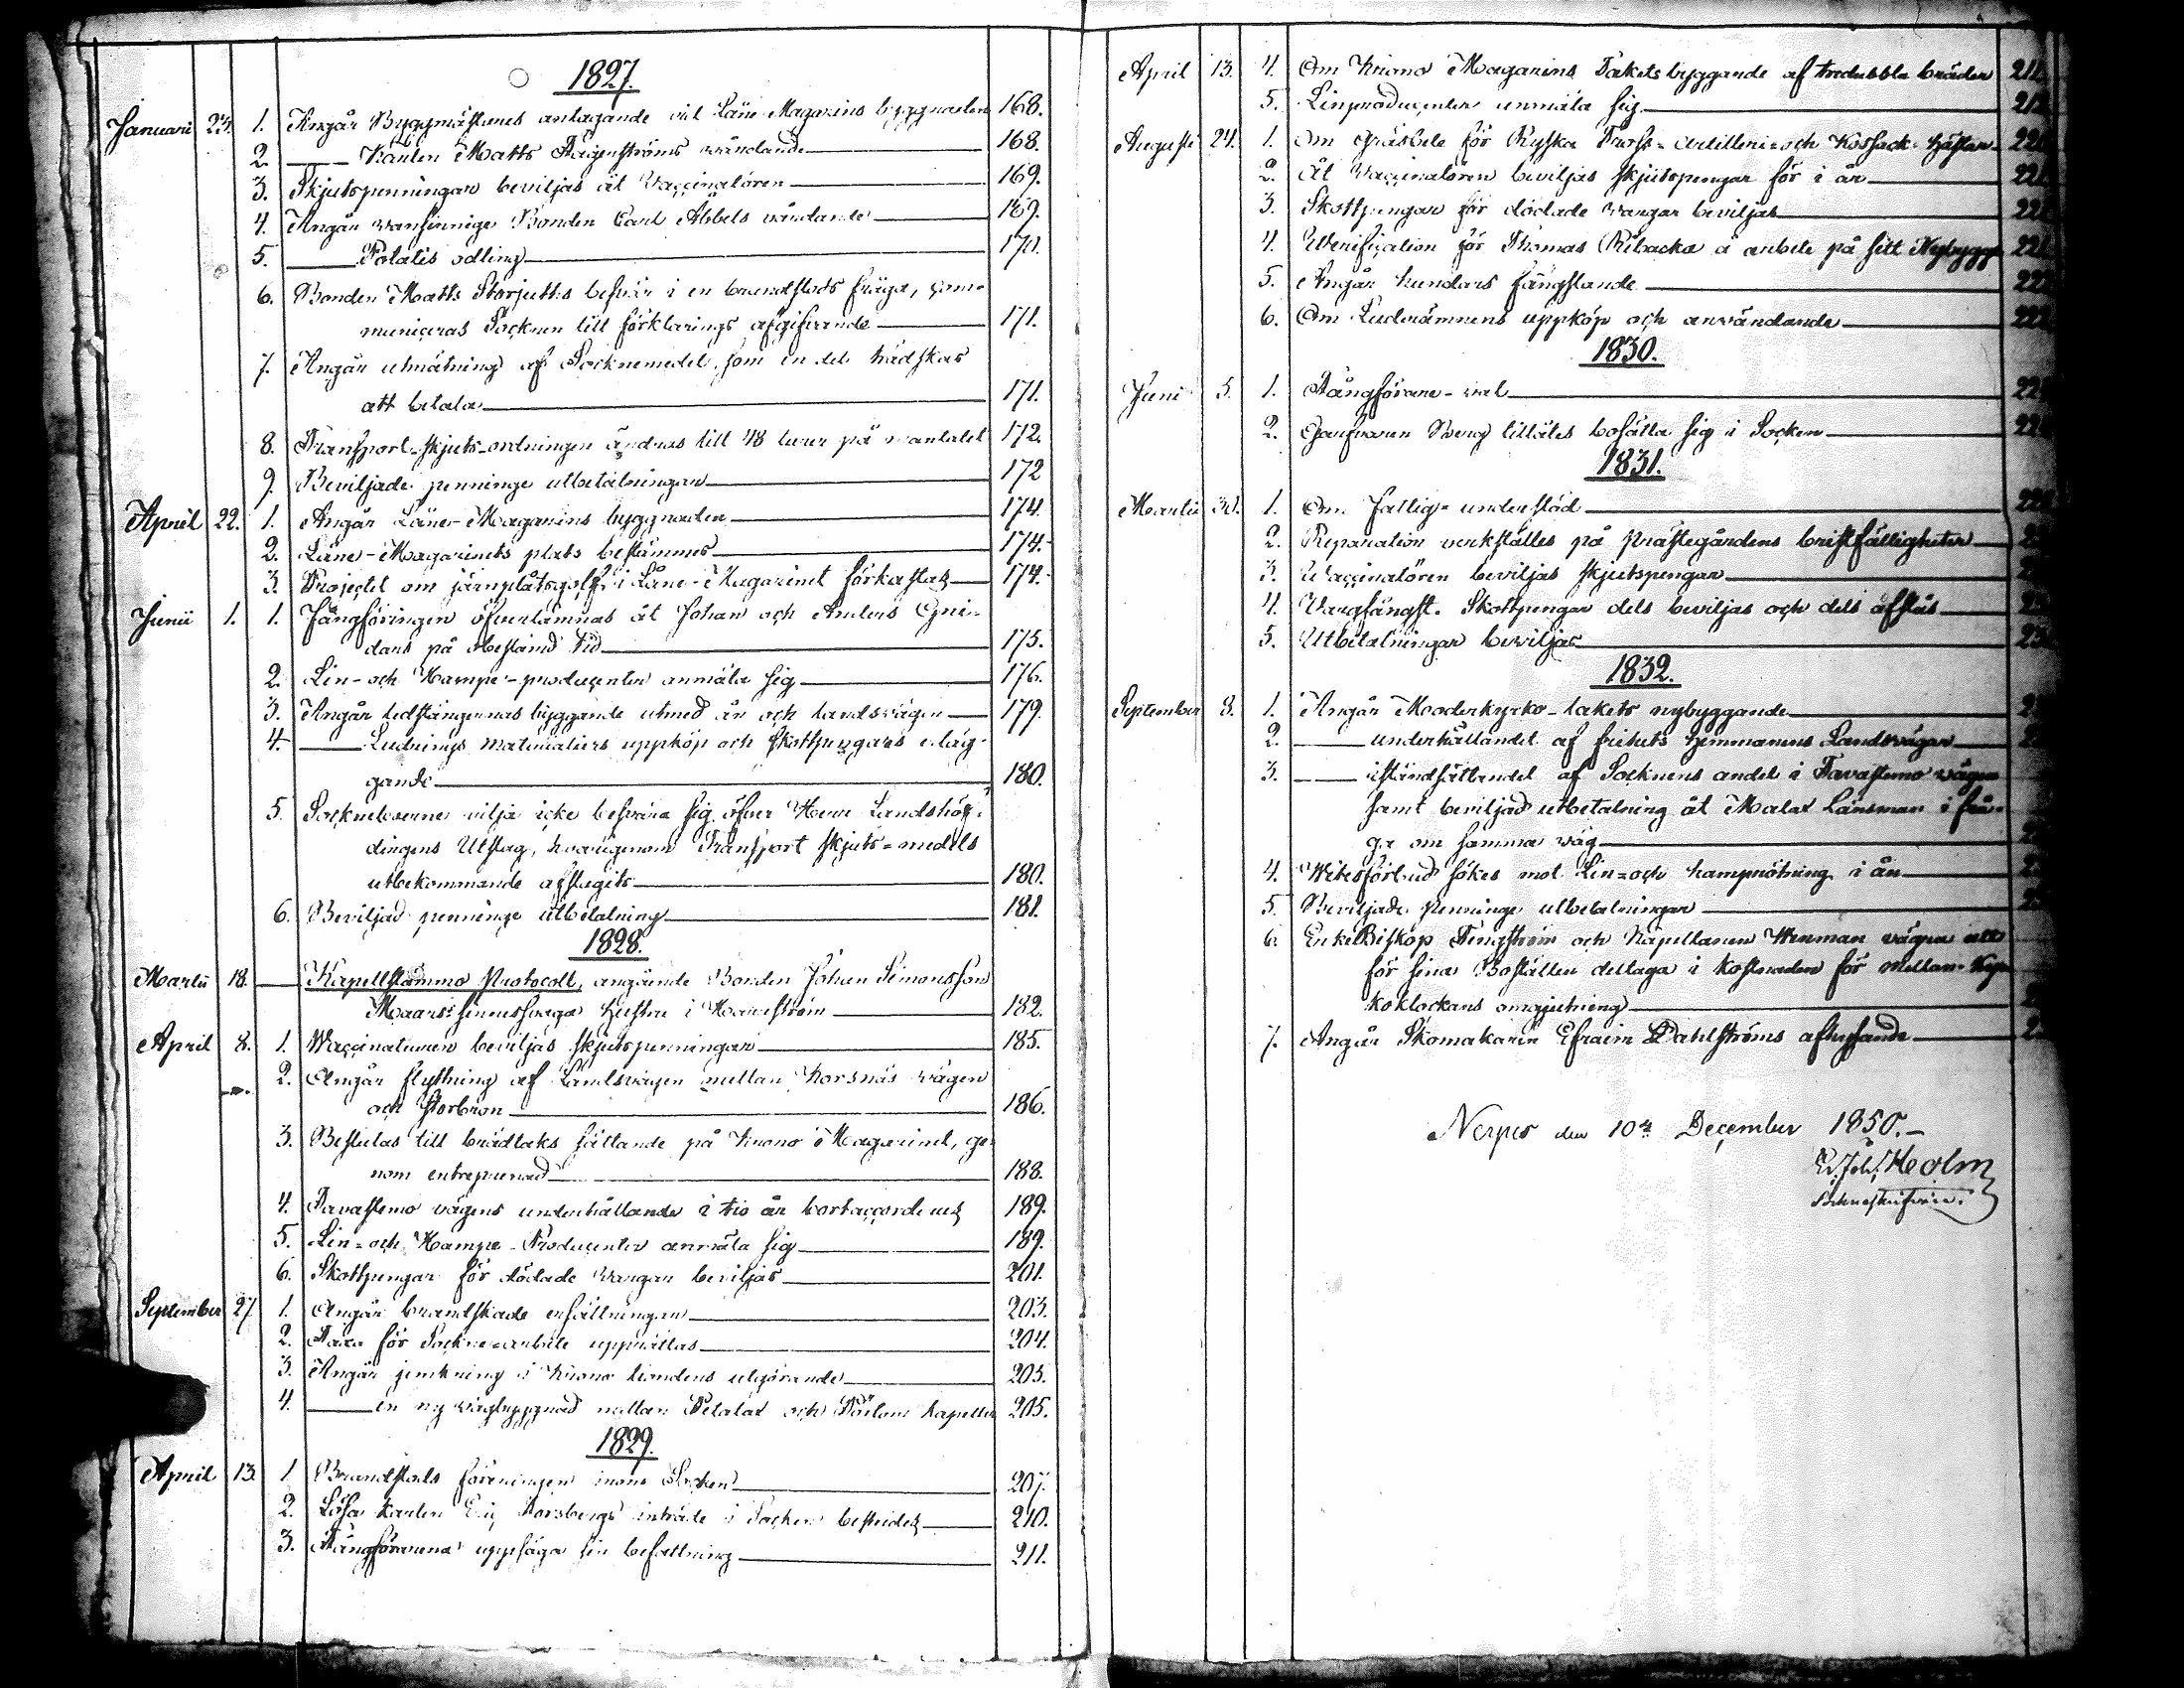 1827.
Januarii 23. 1. Angår Byggmästares antagande vid Låne-Magazins byggnaden 168.
2. Karlen Matts Ragnströms vårdande 168.
3. Skjutspenningar beviljas åt Vaccinatören 169.
4. Angår vansinnige Bonden Carl Abbels vårdande 169.
5. Potatis odling 170.
6. Bonden Matts Storjutbs besvär i en brandstods fråga, com-
municeras Socknen till förklarings afgifvande 171.
7. Angår utmätning af Socknemedel, som en del trädskas
att betala 171.
8. Transport-skjuts-ordningen ändras till 48 turer på mantalet 172.
9. Beviljade penninge utbetalningar 172
April 22. 1. Angår Låne-Magazins byggnaden 174.
2. Låne-Magazinets plats bestämmes 174.
3. Projectet om järnplåtsgolf i Låne-Magazinet förkastas 174.
Junii 1. 1. Fångföringen öfverlämnas åt Johan och Anders Gni-
dars på obestämd tid 175.
2. Lin- och Hampe-producenter anmäla sig 176.
3. Angår ledstängernas byggande utmed ån och landsvägen 179.
4. Ludnings materialiers uppköp och skottpengars erläg-
gande 180.
5. Socknebоerne vilja icke besvära sig öfver Herr Landshöf-
dingens Utslag, hvarigenom Transport skjuts-medels
utbekommande afslagits 180.
6. Beviljad penninge utbetalning 181.
1828.
Martii 18. Kapellstämmo Protocoll, angående Bonden Johan Simonsson
Maars sinnessvaga hustru i Harrström 182.
April 8. 1. Vaccinaturen beviljas skjutspenningar 185.
2. Angår flyttning af Landsvägen mellan Korsnäs vägen
och Storbron 186.
3. Beslutas till brädtaks sättande på Krono Magazinet, ge-
nom entreprenad 188.
4. Tavastmo vägens underhållande i tio år bortaccorderas 189.
5. Lin- och Hampe-Producenter anmäla sig 189.
6. Skottpengar för dödade vargar beviljas 201.
September 27. 1. Angår brandskade ersättningar 203.
2. Taxa för Sockne-arbete upprättas 204.
3. Angår jemkning i Krono tiondens utgörande 205.
4. en ny vägbyggnad mellan Petalax och Pörtom kapeller 205.
1829.
April 13. 1. Brandstods föreningen inom Socken 207.
2. Lösa Karlen Eric Forsbergs inträde i Socken bestrides 210.
3. Fångförarena uppsäga sin befattning 211.
April 13. 4. Om Krono Magazins Takets byggande af tredubbla bräder
5. Linproducenter anmäla sig
Augusti 24. 1. Om gräsbete för Ryska Tross-Artilleri- och Kossack-hästar
2. Åt Vaccinatören beviljas skjutspengar för i år
3. Skottpengar för dödade vargar beviljas
4. Verification för Thomas Ribacka å arbete på sitt Nybygge
5. Angår hundars fängslande
6. Om Ludnämnens uppköp och användande
1830.
Junii 5. 1. Fångförare-val
2. Garfvaren Berg tillåtes bosätta sig i Socken
1831.
Martii 30. 1. Om fattig-understöd
2. Reparation verkställes på Prästegårdens bristfälligheter
3. Vaccinatören beviljas skjutspengar
4. Vargfångst. Skottpengar dels beviljas och dels afslås
5. Utbetalningar beviljas
1832.
September 8. 1. Angår Moderkyrko-takets nybyggande
2. underhållandet af frihets hemmanens Landsvägar
3. iståndsättandet af Socknens andel i Tavastmo vägen
samt beviljad utbetalning åt Malax Länsman i frå-
ga om samma väg
4. Vitesförbud sökes mot Lin- och hamprötning i ån
5. Beviljade Penninge utbetalningar
6. ErkeBiskop Tengström och Kapellanen Wenman vägra att
för sina Boställen deltaga i kostnaden för Mellan-Kyr-
koklockans omgjutning
7. Angår Skomakarn Efraim Dahlströms afhysande
Nerpes den 10de December 1850.
Er. Joh. Holm
Sockneskrifvare.